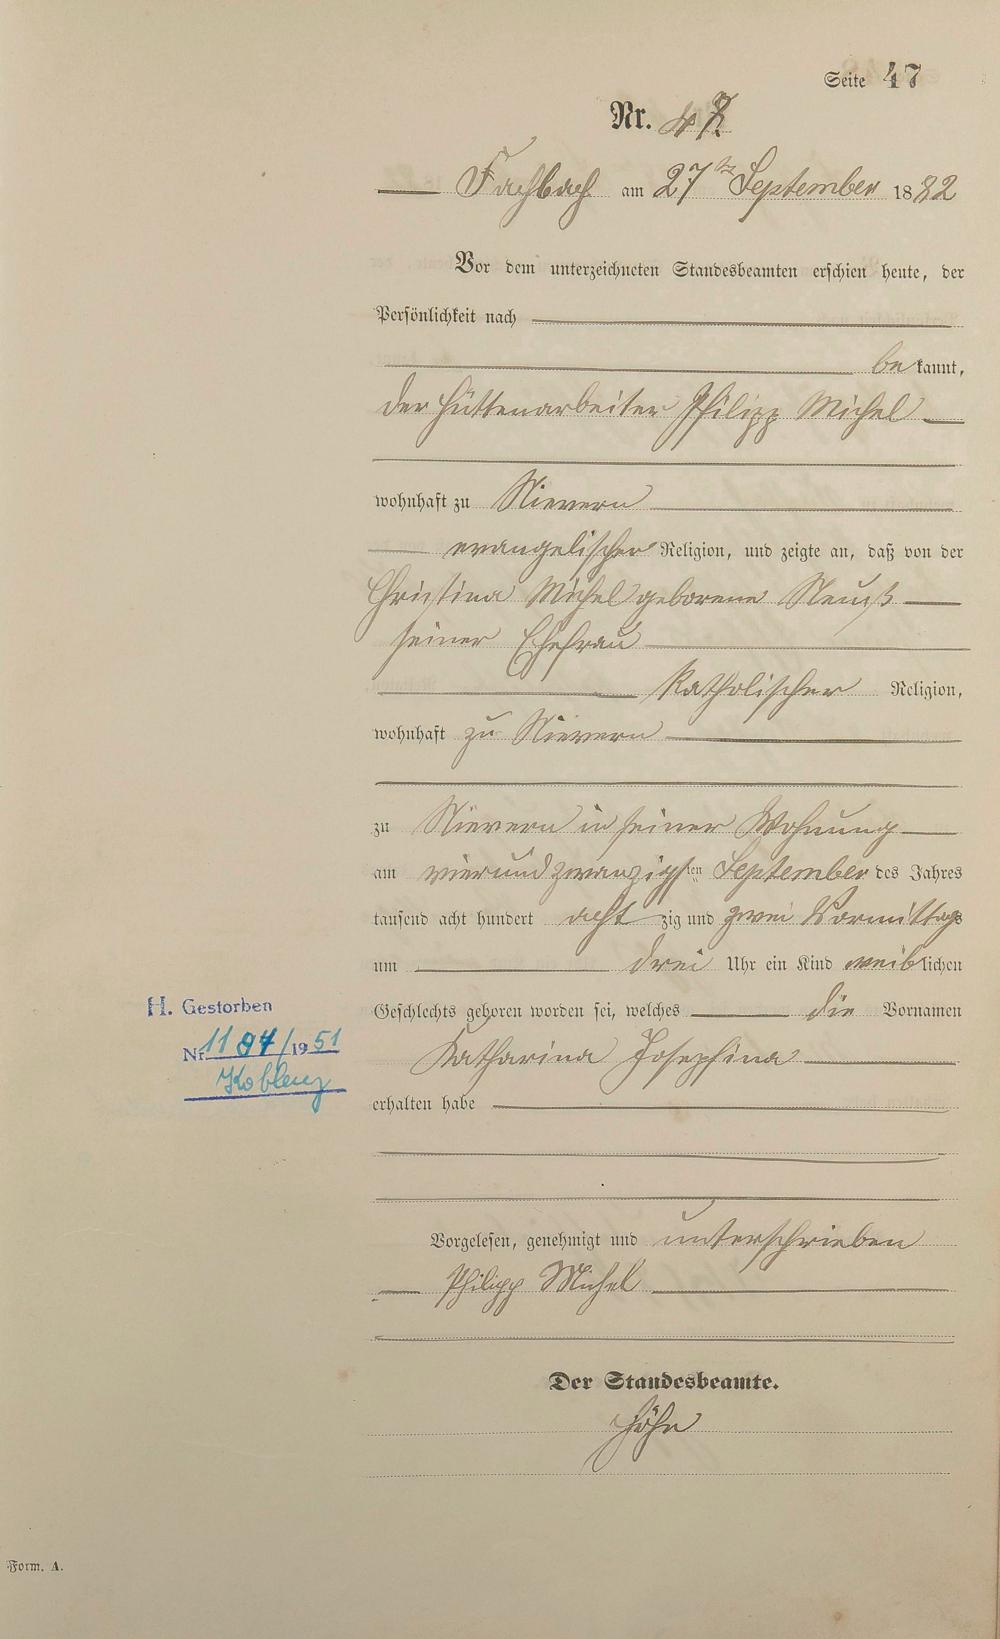 Seite 47
Nr. 47
Fachbach am 27ten September 1882
Vor dem unterzeichneten Standesbeamten erschien heute, der
Persönlichkeit nach
bekannt,
der Hüttenarbeiter Philipp Michel
wohnhaft zu Nievern
evangelischer Religion, und zeigte an, daß von der
Christina Michel geborene
seiner Ehefrau
Katholischer Religion,
wohnhaft zu Nievern
zu Nievern in seiner Wohnung
am vierundzwanzigsten September des Jahres
tausend acht hundert achtzig und zwei Vormittags
um drei Uhr ein Kind weiblichen
H. Gestorben
Geschlechts geboren worden sei, welches die Vornamen
Nr. 1197/1951
Katharina Josephina
Koblenz
erhalten habe
Vorgelesen, genehmigt und unterschrieben
Philipp Michel
Der Standesbeamte.
Höhn
Form. A.